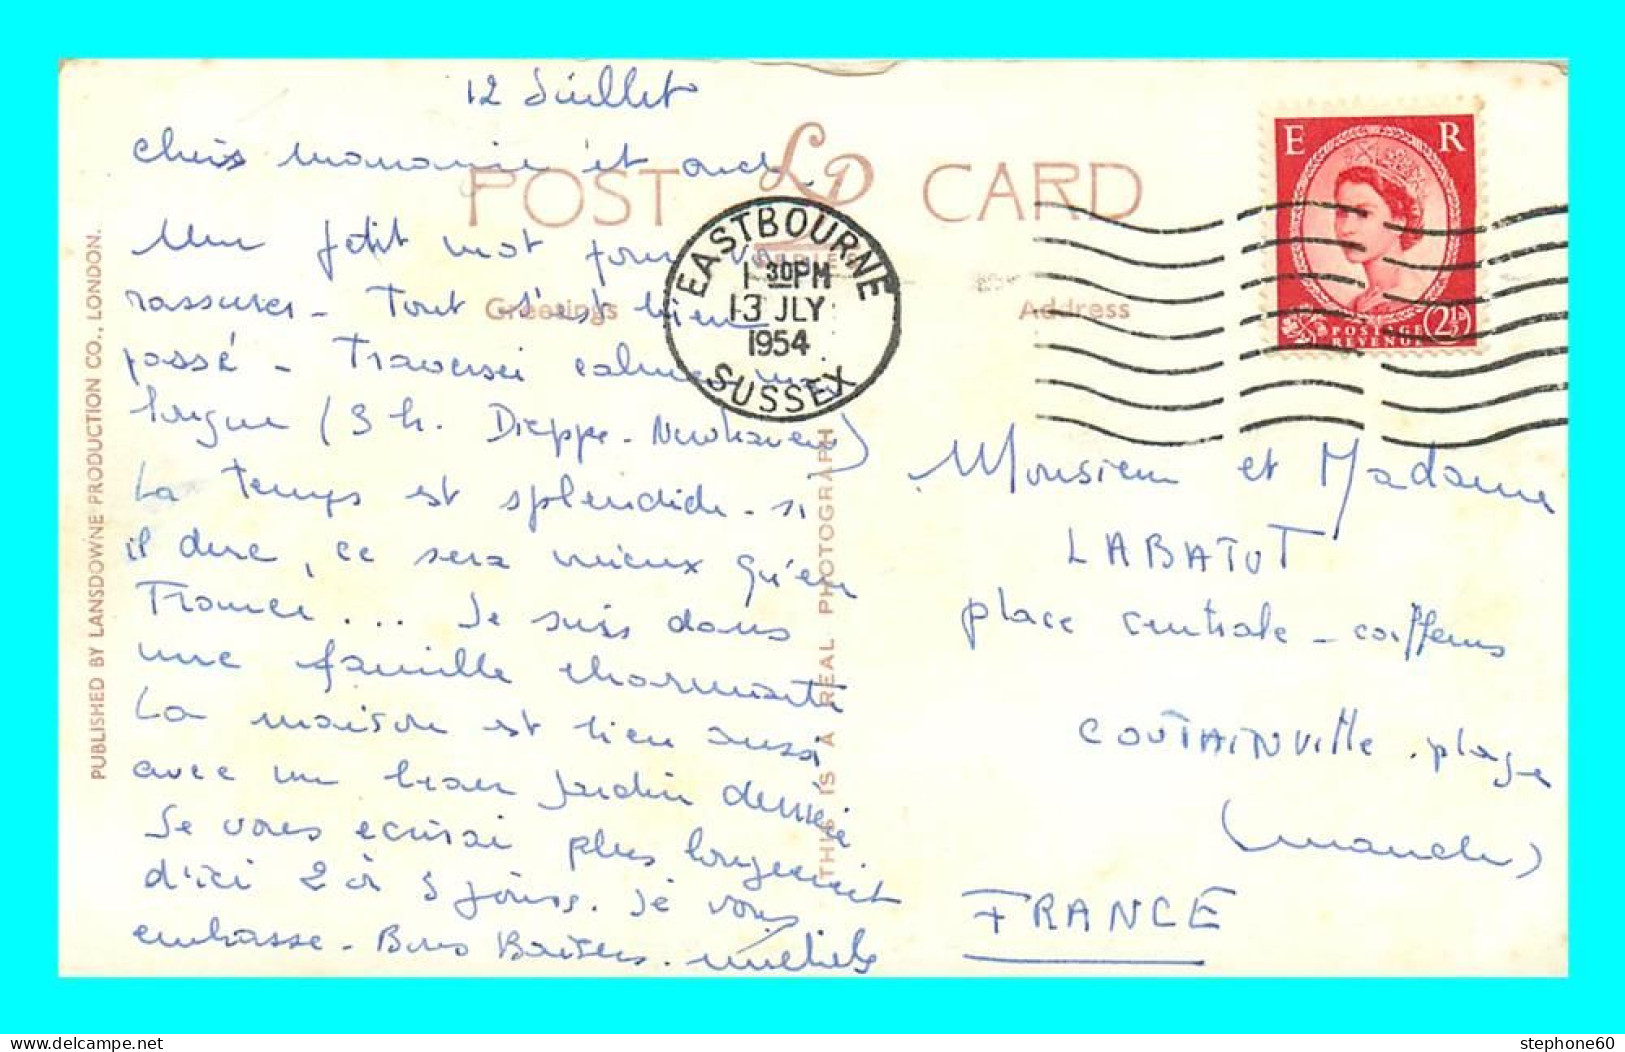 12 Juillet
POST LD CARD
Un petit mot pour vous
rassurer - Tout s'est bien
passé - Traversée calme mais
longue (3 h. Dieppe - Newhaven)
La temps est splendide - si
il dure, ce sera mieux qu'en
France ... Je suis dans
une famille charmante
La maison est bien aussi
avec un beau jardin derrière
Je vous écrirai plus longuement
d'ici 2 à 3 jours. Je vous
embrasse - Bons Baisers.
Greetings
Address
EASTBOURNE
1 30 PM
13 JLY
1954
SUSSEX
E R
POSTAGE
REVENUE
2½D
Monsieur et Madame
LABATUT
place centrale - coiffeurs
COUTAINVille . plage
(Manche)
FRANCE
PUBLISHED BY LANSDOWNE PRODUCTION CO., LONDON.
THIS IS A REAL PHOTOGRAPH
stephone60